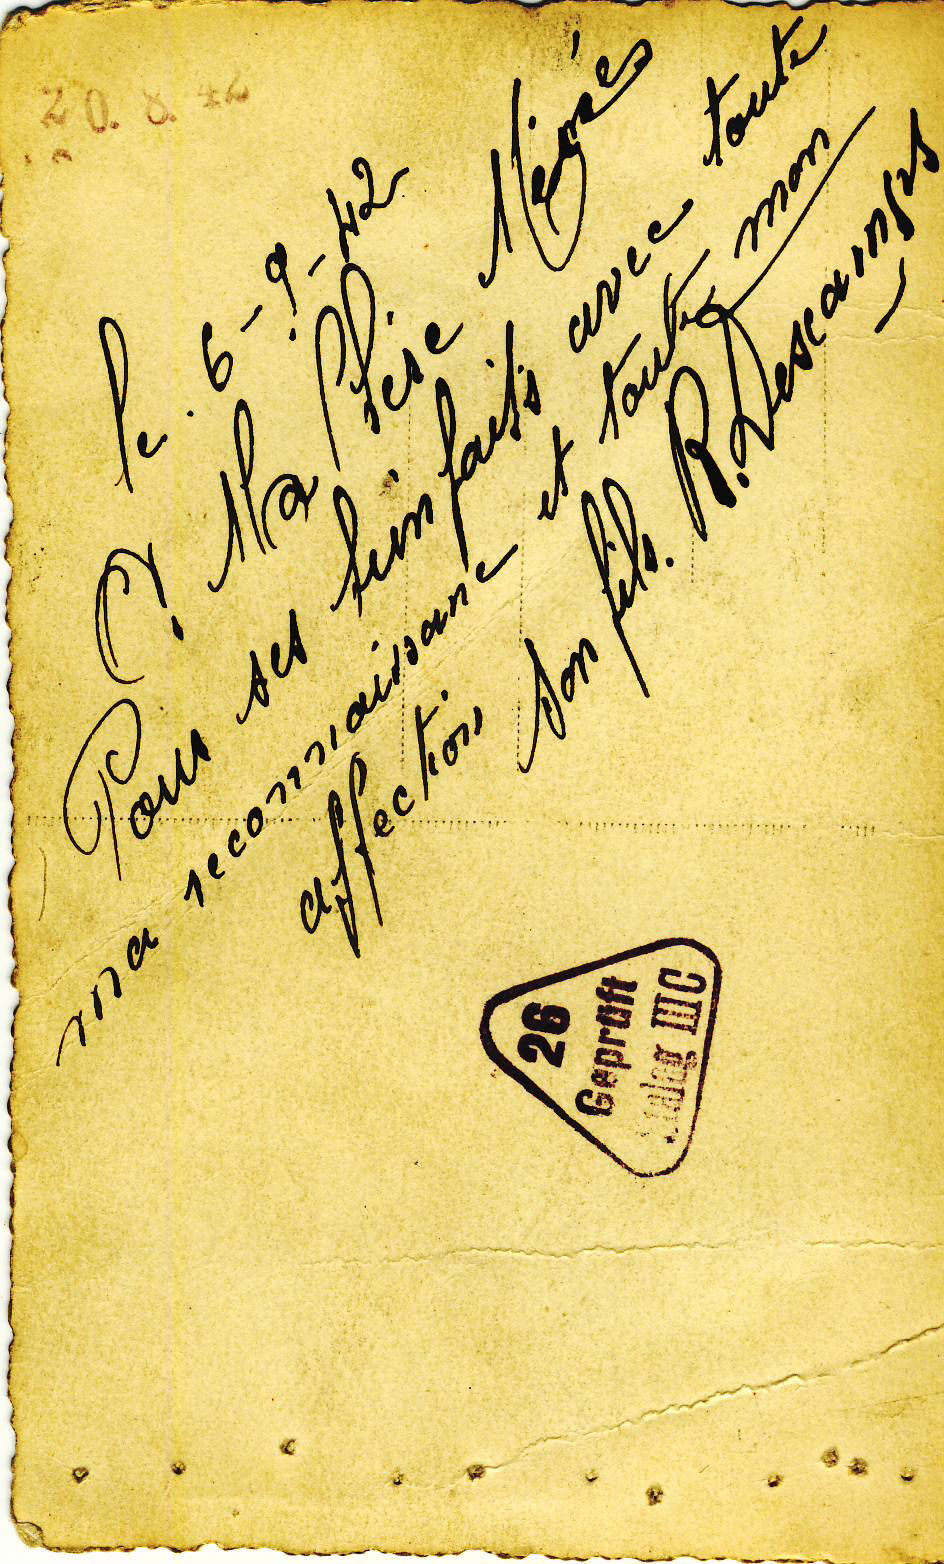 20.8.42
le. 6-9-42
à Ma Chère Mémé
Pour ses bienfaits avec toute
ma reconnaissance et toute mon
affection Son fils. R. Descamps
26
Geprüft
Stalag IIIC